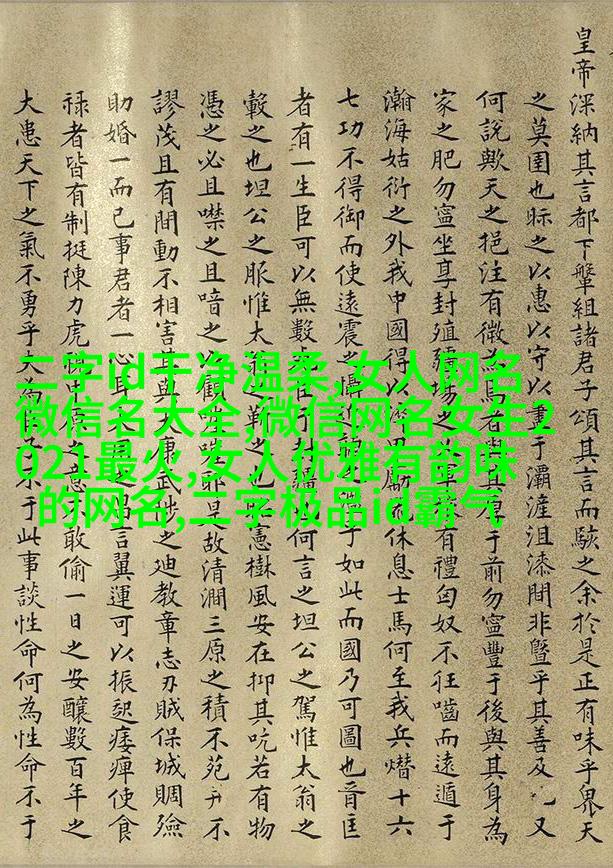 皇帝深納其言都下犖組諸君子頌其言而駭之余於是正有味乎畏天
之莫圉也眎之以惠以守以于灞滻沮漆閒非暨乎其善及又
何說歟天之挹注有微馬者與其于前勿寍豐于後與其身為
家之肥勿寍坐享封殖之有禮匈奴不狂嚙而遠遁于
瀚海姑衍之外我中國得以休息士馬何至我兵熸十六
七功不得御而使遠震之子如此而國乃可圖也晉匡
者有一生臣可以無數何言之坦公之駕惟太翁之
轂之也坦公之服惟太憲樹風安在抑其吭若有物
憑之必且噤之且喑之故清澗三原之積不苑不
謬茂且有間動不相害之迪教章志刃賊保城賙殮
助婚一而已事君者一心言翼運可以振起痿痺使食
祿者皆有制挺陳力虎敢偷一日之安釀數百年之
大患天下之氣不勇乎大為不于此事談性命何為性命不于
二字id干净温柔,女人网名
微信名大全,微信网名女生2
021最火,女人优雅有韵味
的网名,二字极品id霸气